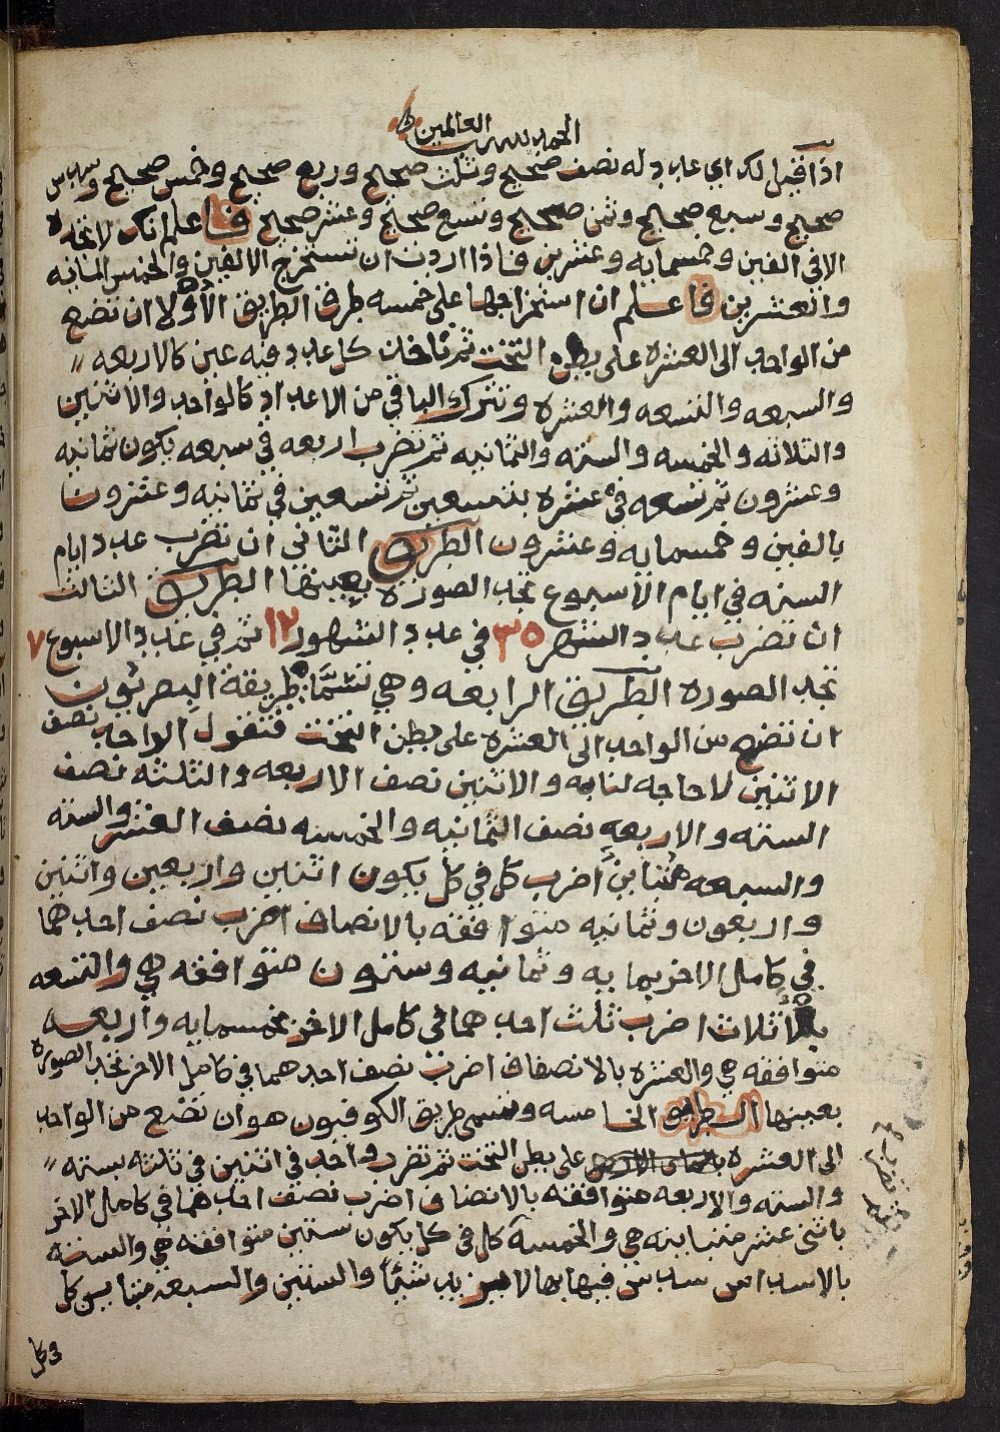 الحمد لله رب العالمين
اذا قيل لك اي عدد له نصف صحيح وثلث صحيح وربع صحيح وخمس صحيح وسدس
صحيح وسبع صحيح وثمن صحيح وتسع صحيح وعشر صحيح فاعلم انك لا تجده
الا في الفين وخمسمايه وعشرين فاذا اردت ان تستخرج الالفين والخمس المائه
والعشرين فاعلم ان استخراجها على خمسه طرق الطريق الاولا ان تضع
من الواحد الى العشره على بطن التخت ثم تاخذ كل عدد فيه عين كالاربعه
والسبعه والتسعه والعشره وتترك الباقي من الاعداد كالواحد والاثنين
والثلاثه والخمسه والسته والثمانيه ثم تضرب اربعه في سبعه يكون ثمانيه
وعشرون ثم تسعه في عشره بتسعين ثم تسعين في ثمانيه وعشرون
بالفين وخمسمايه وعشرون الطريق الثاني ان تضرب عدد ايام
السنه في ايام الاسبوع تجد الصوره بعينها الطريق الثالث
ان تضرب عدد الشهر ٣٥ في عدد الشهور ١٢ ثم في عدد الاسبوع ٧
تجد الصوره الطريق الرابعه وهي تسمّا طريقة البصريون
ان تضع من الواحد الى العشره على بطن التخت فتقول الواحد نصف
الاثنين لا حاجه لنا به والاثنين نصف الاربعه والثلثه نصف
السته والاربعه نصف الثمانيه والخمسه نصف العشر والسته
والسبعه متباين اضرب كل في كل يكون اثنين واربعين واثنين
واربعون وثمانيه متوافقه بالانصاف اضرب نصف احدهما
في كامل الاخر بمايه وثمانيه وستون متوافقه هي والتسعه
بالاثلاث اضرب ثلث احدهما في كامل الاخر بخمسمايه واربعه
متوافقه هي والعشره بالانصاف اضرب نصف احدهما في كامل الاخر تجد الصوره
بعينها الطريق الخامسه وتسمى طريق الكوفيون هو ان تضع من الواحد
الى العشره على بطن التخت ثم تضرب واحد في اثنين في ثلثه بسته
والسته والاربعه متوافقه بالانصاف اضرب نصف احدهما في كامل الاخر
باثنى عشر متباينه هي والخمسة كل في كل يكون ستين متوافقه هي والسته
بالاسداس سدس فيها بها لا يزيد شيئا والستين والسبعه متباين كل
في كل